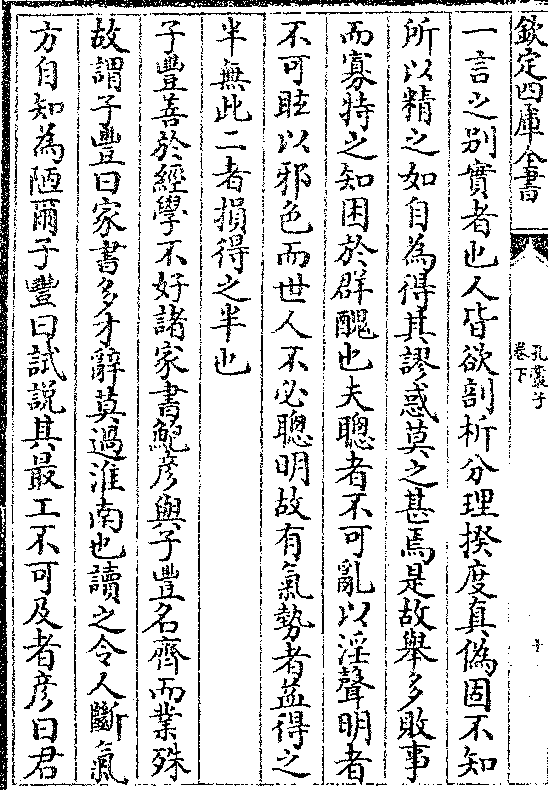 欽定四庫全書
孔叢子
卷下
一言之别實者也人皆欲剖析分理揆度真偽固不知
所以精之如自為得其謬惑莫之甚焉是故舉多敗事
而寡特之知困於群醜也夫聰者不可亂以淫聲明者
不可眩以邪色而世人不必聰明故有氣勢者益得之
半無此二者損得之半也
子豐善於經學不好諸家書鮑彦與子豐名齊而業殊
故謂子豐曰家書多才辭莫過淮南也讀之令人斷氣
方自知為陋爾子豐曰試説其最工不可及者彦曰君